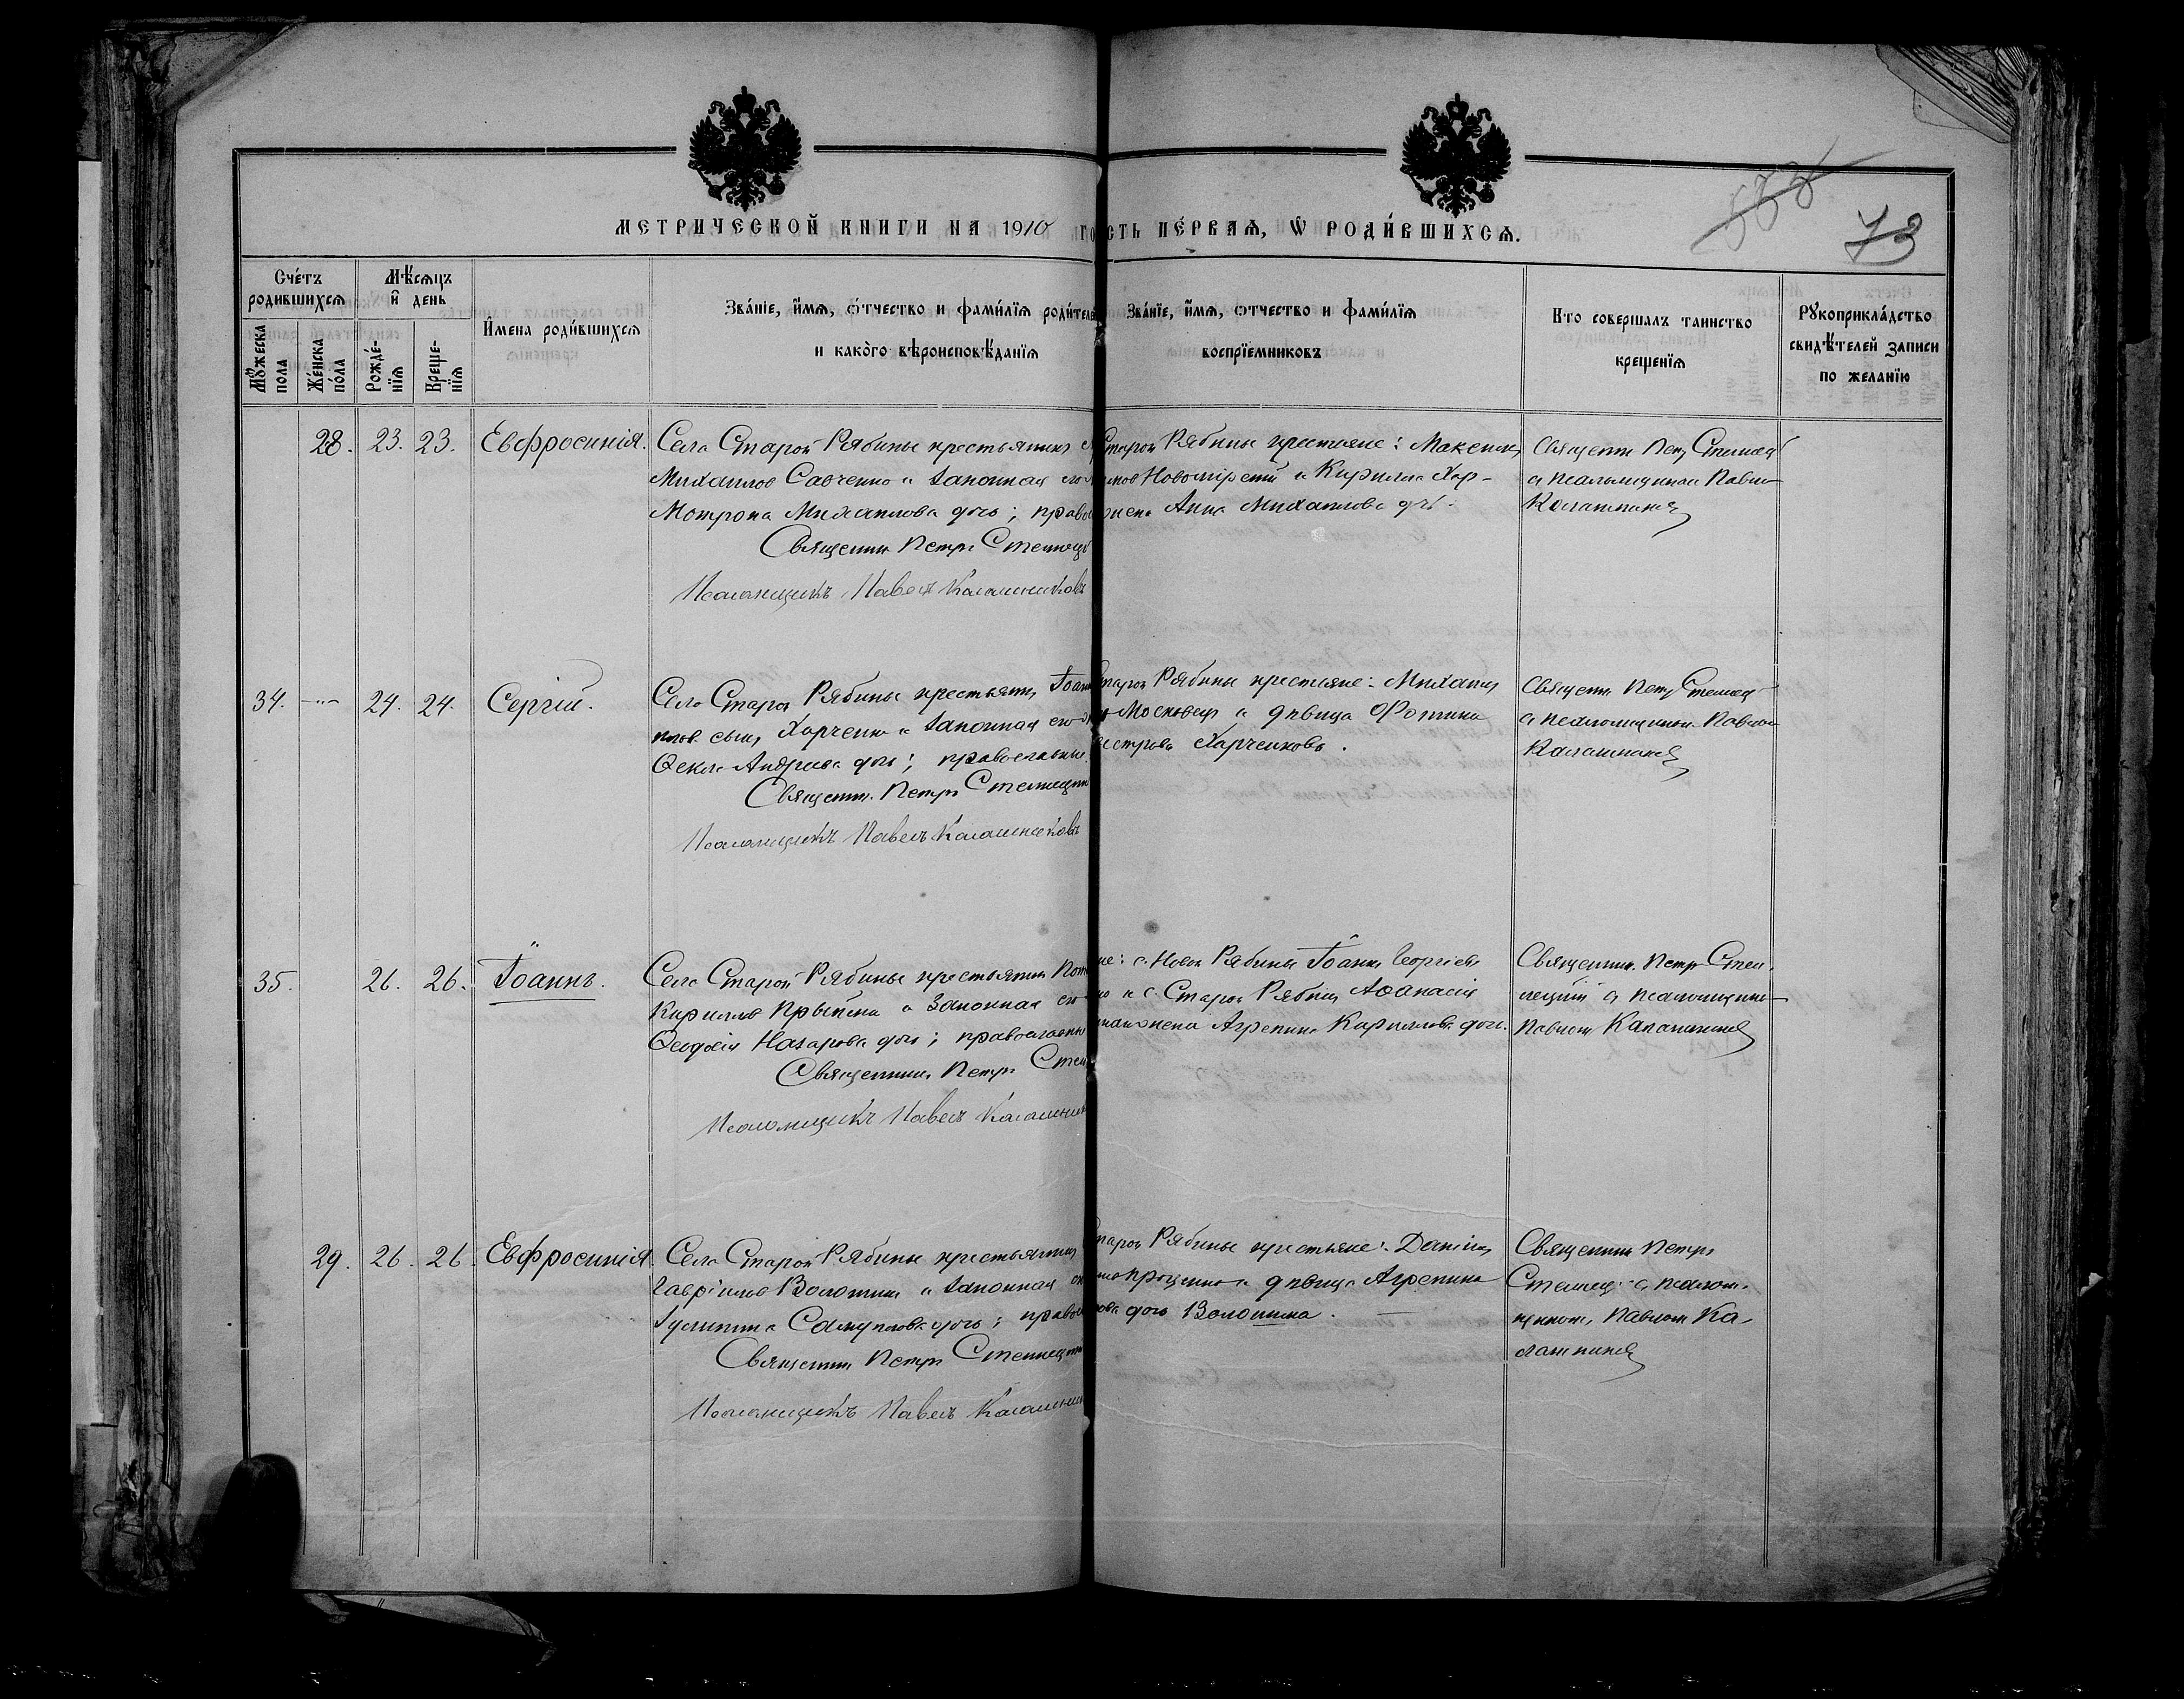 МЕТРИЧЕСКОЙ КНИГИ НА 1910 ГО
СТЬ ПЕ́РВАѦ, Ѡ РОДИ́ВШИХСѦ.
573
73
Сче́тъ родившихсѧ
Мѣсѧцъ и день
Мꙋжеска пола
Же́нска по́ла
Рожде́нїѧ
Креще́нїѧ
И́мена роди́вшихсѧ
Зва́нїе, и́мѧ, ѻ́тчество и фами́лїѧ роди́теле
и како́го вѣроисповѣ́данїѧ
Зва́нїе, и́мѧ, ѻтчество и фами́лїѧ
воспрїемниковъ
Кто совершалъ таинство
крещенїѧ
Рꙋкоприкла́дство
свидѣ́телей записи
по желанїю
28. 23. 23. Евфросинія.
Села Старой Рябины крестьянинъ
Михаиловъ Савченко и законная его
Мотрона Михаилова дочь; правос
Священник Петръ Стеллецкій
Псаломщикъ Павелъ Калашниковъ
Старой Рябины крестьяне: Максимъ
Новомірскій и Кирилла Хар-
Анна Михаилова дчь.
Священник Петръ Стеллецкій
съ псаломщикомъ Павломъ
Калашниковъ
34. -"- 24. 24. Сергій.
Села Старой Рябины крестьянин Іоанн
сынъ Харченко и законная его
Ѳекла Андреева дочь; православные.
Священник Петръ Стеллецкій
Псаломщикъ Павелъ Калашниковъ
Старой Рябины крестьяне: Михаилъ
Московецъ и дѣвица Фотина
Харченкова.
Священник Петръ Стеллецкій
съ псаломщикомъ Павломъ
Калашниковъ
35. 26. 26. Іоаннъ.
Села Старой Рябины крестьянин
Кирилловъ и Законная его
Ѳеодосія Назарова дочь; православны
Священник Петръ Стел
Псаломщикъ Павелъ Калашник
не: с. Новой Рябины Іоаннъ Георгіевъ
и с. Старой Рябины Аѳанасія
жена Агрепина Кириллова дочь.
Священник Петръ Стел-
лецкій съ псаломщикомъ
Павломъ Калашниковъ
29. 26. 26. Евфросинія
Села Старой Рябины крестьянинъ
Гавріиловъ Волошинъ и законная
Іулиттта Самуилова дочь; правос
Священник Петръ Стеллецкій
Псаломщикъ Павелъ Калашник
Старой Рябины крестьяне: Даніилъ
Проценко и дѣвица Агрепина
дочь Волошина.
Священник Петръ
Стеллецкій съ псалом-
щикомъ Павломъ Ка-
лашниковъ